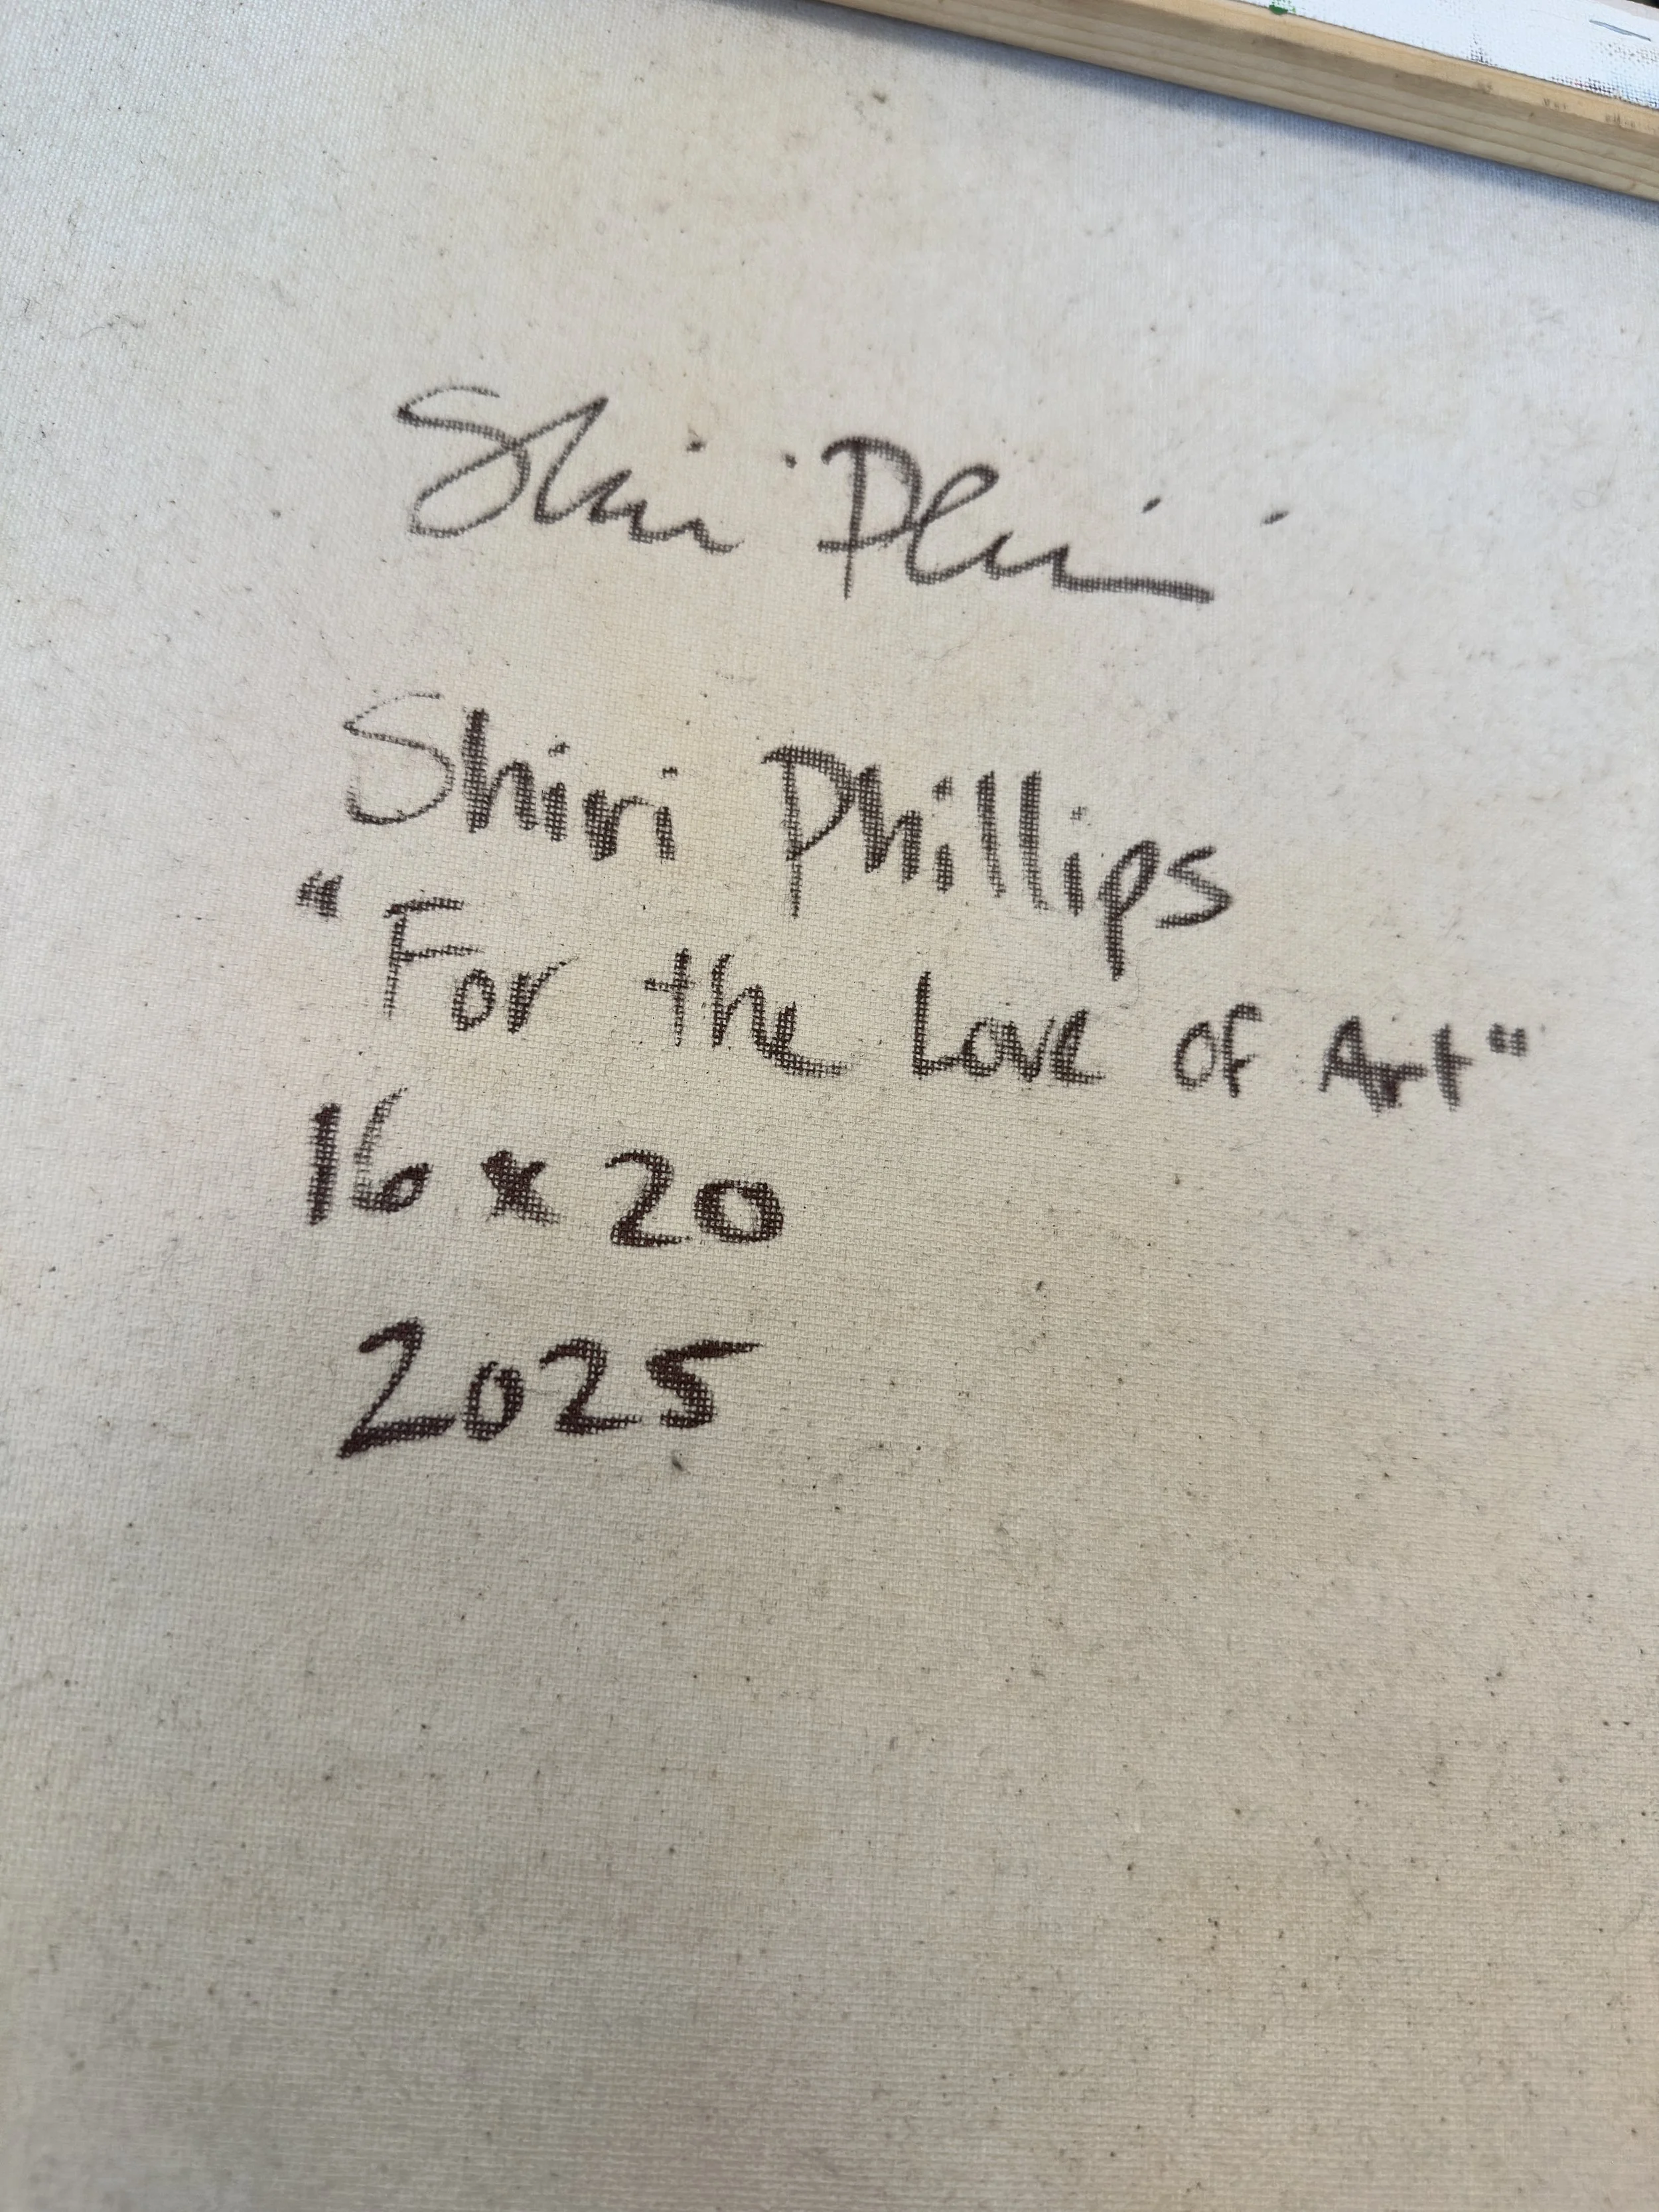 Shiri Phillips
"For the Love of Art"
16 x 20
2025